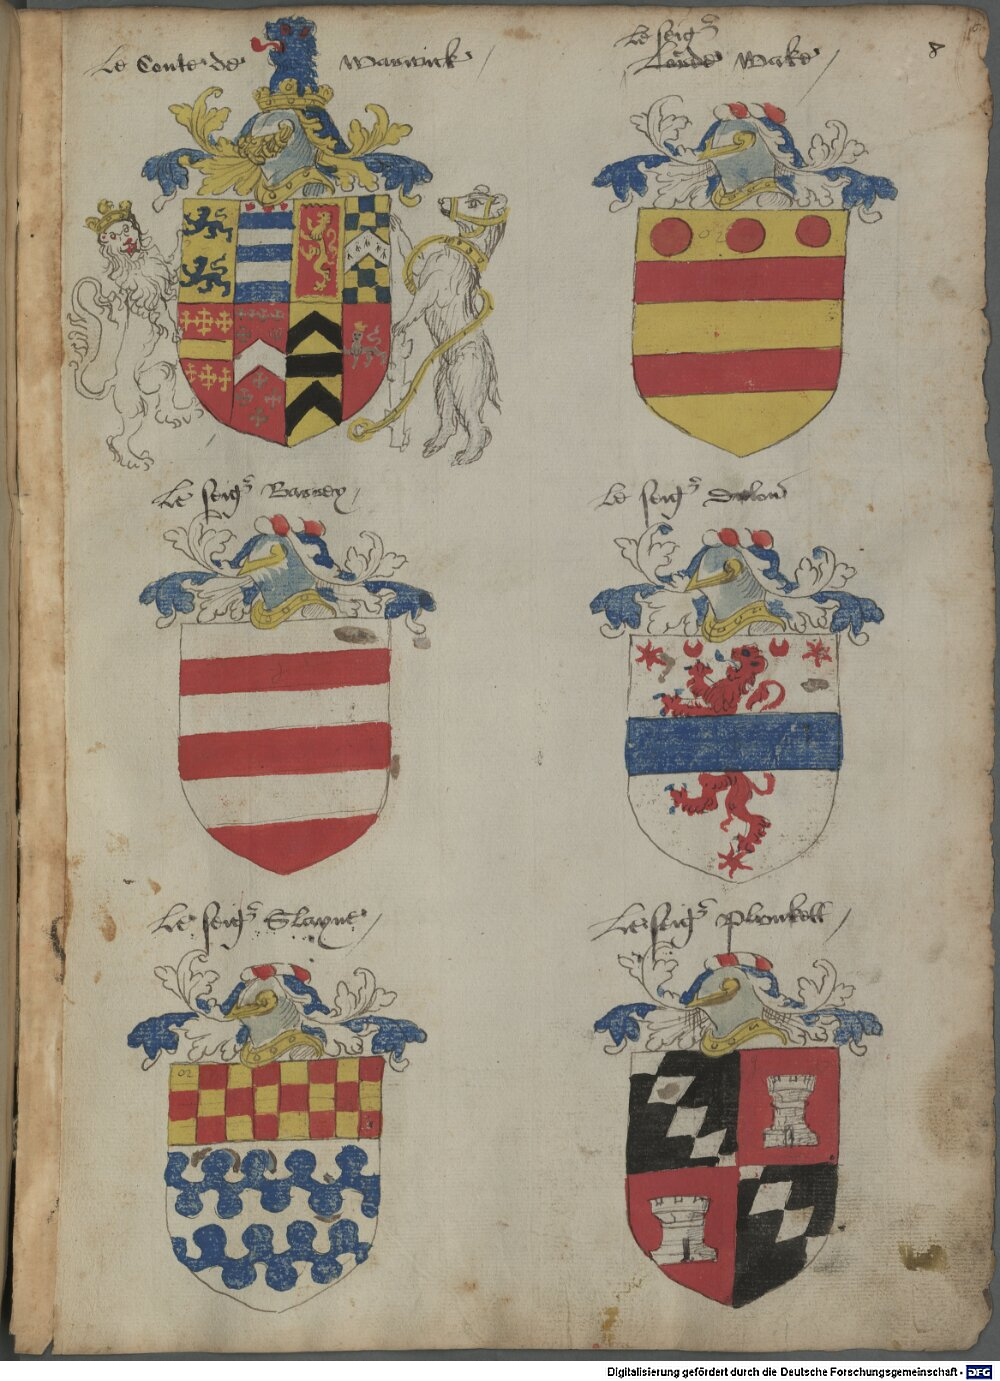 Le Conte de Warwick
Le seigr
Lorde Wake
8
or
Le seigr Barrey
Le seigr
Le seigr Slayne
Le seigr Plonkett
or
Digitalisierung gefördert durch die Deutsche Forschungsgemeinschaft - DFG